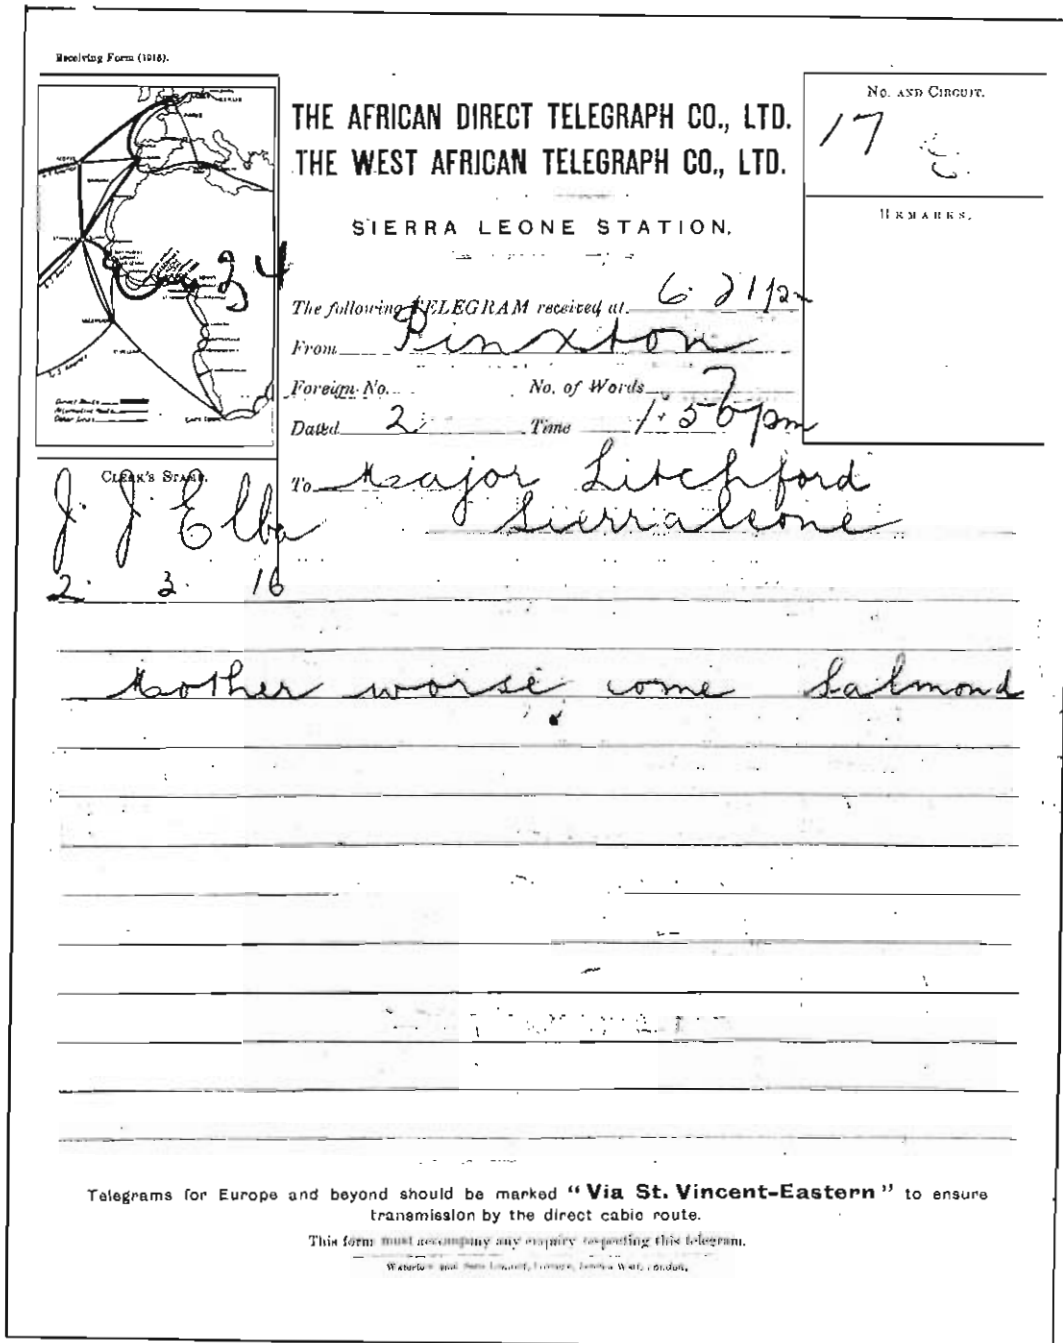 Receiving Form (1915).
THE AFRICAN DIRECT TELEGRAPH CO., LTD.
THE WEST AFRICAN TELEGRAPH CO., LTD.
SIERRA LEONE STATION.
No. AND CIRCUIT.
17
REMARKS.
34
The following TELEGRAM received at 6.21 pm
From Pinxton
Foreign No. No. of Words 7
Dated 2 Time 1.56 pm
To Major Litchford
Sierraleone
CLERK'S STAMP.
J. J Elba
2. 3. 16
Mother worse come Salmond
Telegrams for Europe and beyond should be marked "Via St. Vincent-Eastern" to ensure
transmission by the direct cable route.
This form must accompany any enquiry respecting this telegram.